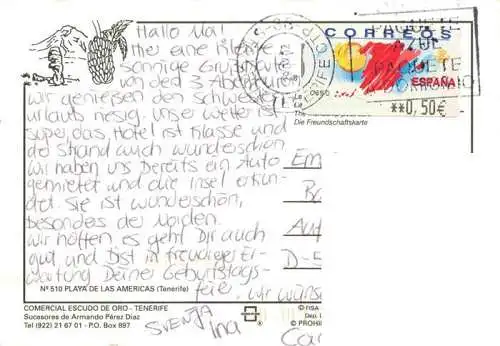 Hallo Ma!
Hier eine kleine
sonnige Grußkarte
von den 3
wir genießen den
urlaub riesig. Unser wetter ist
super, das Hotel ist Klasse und
der Strand auch wunderschön
wir haben uns bereits ein Auto
gemietet und die Insel erkun-
det. Sie ist wunderschön,
besonders der Norden.
wir hoffen es geht Dir auch
gut, und bist in freudiger Er-
wartung Deiner Geburtstags-
feier. wir wüns
SVENJA
Ina
CORREOS
ESPAÑA
**0,50€
PAQUETE
AZUL
PAQUETE
Die Freundschaftskarte
D-5
Nº 510 PLAYA DE LAS AMERICAS (Tenerife)
COMERCIAL ESCUDO DE ORO - TENERIFE
Sucesores de Armando Pérez Díaz
Tel (922) 21 67 01 - P.O. Box 897
© FISA
© PROHIB